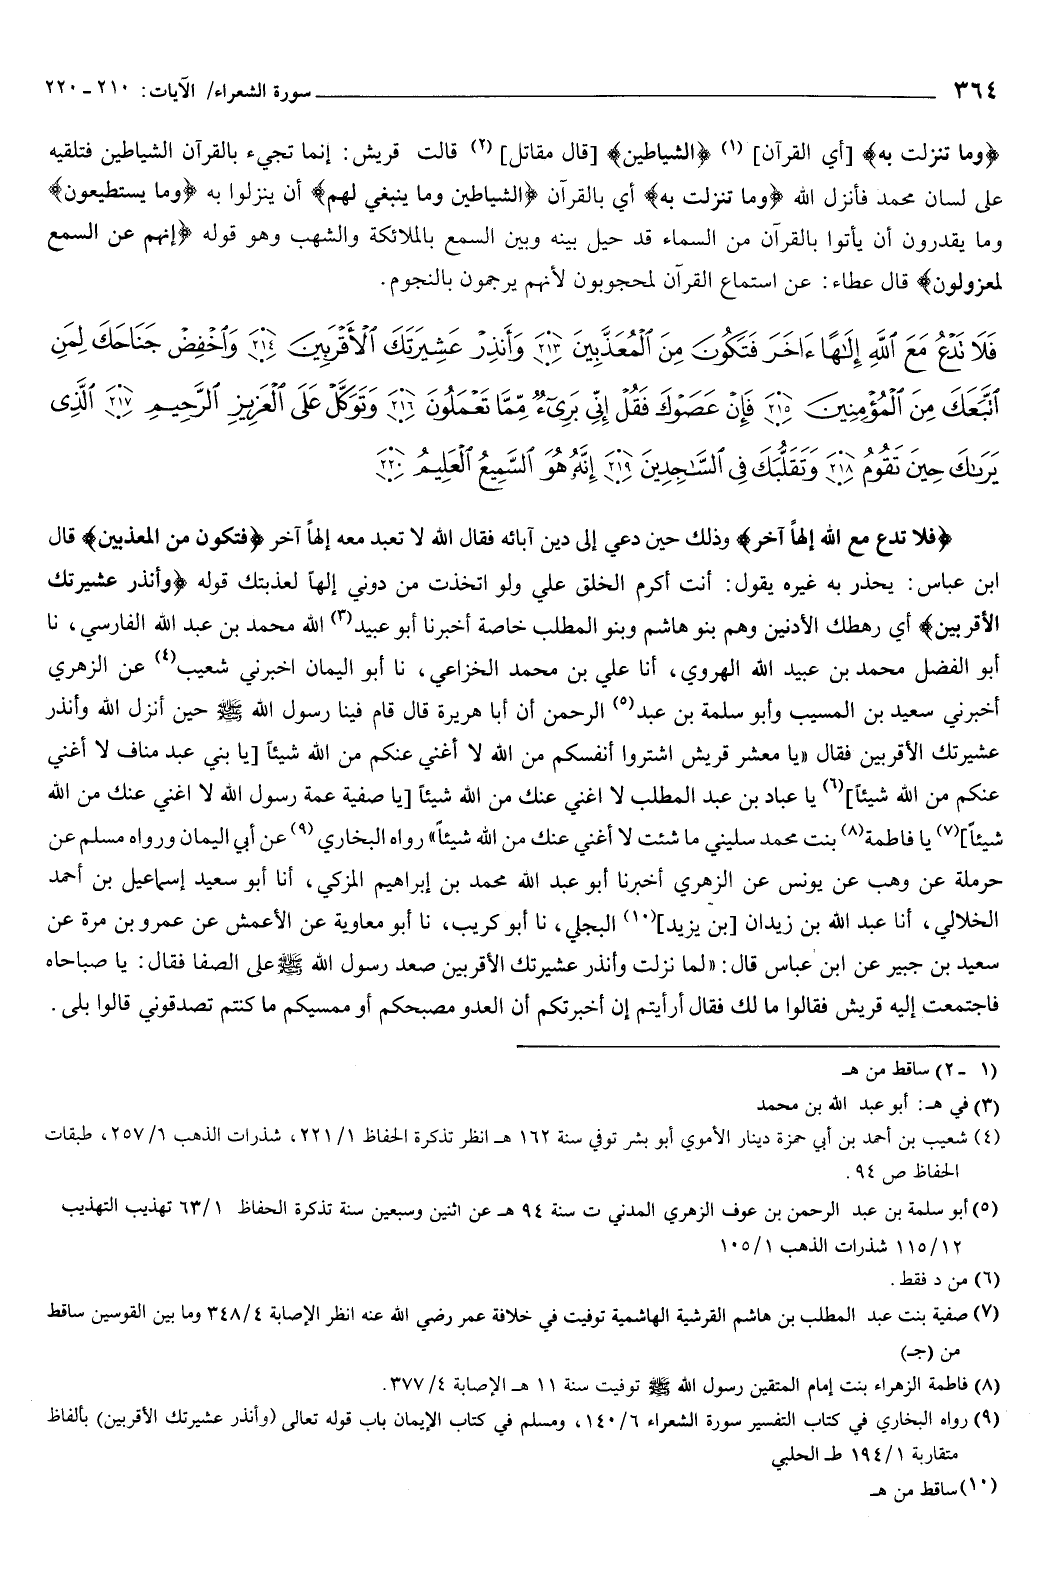 ٣٦٤ سورة الشعراء/ الآيات: ٢١٠ ـ ٢٢٠
﴿وما تنزلت به﴾ [أي القرآن] (١) ﴿الشياطين﴾ [قال مقاتل] (٢) قالت قريش: إنما تجيء بالقرآن الشياطين فتلقيه
على لسان محمد فأنزل الله ﴿وما تنزلت به﴾ أي بالقرآن ﴿الشياطين وما ينبغي لهم﴾ أن ينزلوا به ﴿وما يستطيعون﴾
وما يقدرون أن يأتوا بالقرآن من السماء قد حيل بينه وبين السمع بالملائكة والشهب وهو قوله ﴿إنهم عن السمع
لمعزولون﴾ قال عطاء: عن استماع القرآن لمحجوبون لأنهم يرجمون بالنجوم.
فَلَا نَدْعُ مَعَ ٱللَّهِ إِلَٰهًا ءَاخَرَ فَتَكُونَ مِنَ ٱلْمُعَذَّبِينَ ﴿٢١٣﴾ وَأَنذِرْ عَشِيرَتَكَ ٱلْأَقْرَبِينَ ﴿٢١٤﴾ وَٱخْفِضْ جَنَاحَكَ لِمَنِ
ٱتَّبَعَكَ مِنَ ٱلْمُؤْمِنِينَ ﴿٢١٥﴾ فَإِنْ عَصَوْكَ فَقُلْ إِنِّى بَرِىٓءٌ مِّمَّا تَعْمَلُونَ ﴿٢١٦﴾ وَتَوَكَّلْ عَلَى ٱلْعَزِيزِ ٱلرَّحِيمِ ﴿٢١٧﴾ ٱلَّذِى
يَرَىٰكَ حِينَ تَقُومُ ﴿٢١٨﴾ وَتَقَلُّبَكَ فِى ٱلسَّٰجِدِينَ ﴿٢١٩﴾ إِنَّهُۥ هُوَ ٱلسَّمِيعُ ٱلْعَلِيمُ ﴿٢٢٠﴾
﴿فلا تدع مع الله إلهاً آخر﴾ وذلك حين دعي إلى دين آبائه فقال الله لا تعبد معه إلهاً آخر ﴿فتكون من المعذبين﴾ قال
ابن عباس: يحذر به غيره يقول: أنت أكرم الخلق علي ولو اتخذت من دوني إلهاً لعذبتك قوله ﴿وأنذر عشيرتك
الأقربين﴾ أي رهطك الأدنين وهم بنو هاشم وبنو المطلب خاصة أخبرنا أبو عبيد(٣) الله محمد بن عبد الله الفارسي، نا
أبو الفضل محمد بن عبيد الله الهروي، أنا علي بن محمد الخزاعي، نا أبو اليمان اخبرني شعيب(٤) عن الزهري
أخبرني سعيد بن المسيب وأبو سلمة بن عبد(٥) الرحمن أن أبا هريرة قال قام فينا رسول الله ﷺ حين أنزل الله وأنذر
عشيرتك الأقربين فقال «يا معشر قريش اشتروا أنفسكم من الله لا أغني عنكم من الله شيئاً [يا بني عبد مناف لا أغني
عنكم من الله شيئاً](٦) يا عباد بن عبد المطلب لا اغني عنك من الله شيئاً [يا صفية عمة رسول الله لا اغني عنك من الله
شيئاً](٧) يا فاطمة(٨) بنت محمد سليني ما شئت لا أغني عنك من الله شيئاً» رواه البخاري (٩) عن أبي اليمان ورواه مسلم عن
حرملة عن وهب عن يونس عن الزهري أخبرنا أبو عبد الله محمد بن إبراهيم المزكي، أنا أبو سعيد إسماعيل بن أحمد
الخلالي، أنا عبد الله بن زيدان [بن يزيد](١٠) البجلي، نا أبو كريب، نا أبو معاوية عن الأعمش عن عمرو بن مرة عن
سعيد بن جبير عن ابن عباس قال: «لما نزلت وأنذر عشيرتك الأقربين صعد رسول الله ﷺ على الصفا فقال: يا صباحاه
فاجتمعت إليه قريش فقالوا ما لك فقال أرأيتم إن أخبرتكم أن العدو مصبحكم أو ممسيكم ما كنتم تصدقوني قالوا بلى.
(١ ـ ٢) ساقط من هـ
(٣) في هـ: أبو عبد الله بن محمد
(٤) شعيب بن أحمد بن أبي حمزة دينار الأموي أبو بشر توفي سنة ١٦٢ هـ انظر تذكرة الحفاظ ٢٢١/١، شذرات الذهب ٢٥٧/٦، طبقات
الحفاظ ص ٩٤.
(٥) أبو سلمة بن عبد الرحمن بن عوف الزهري المدني ت سنة ٩٤ هـ عن اثنين وسبعين سنة تذكرة الحفاظ ٦٣/١ تهذيب التهذيب
١١٥/١٢ شذرات الذهب ١٠٥/١
(٦) من د فقط.
(٧) صفية بنت عبد المطلب بن هاشم القرشية الهاشمية توفيت في خلافة عمر رضي الله عنه انظر الإصابة ٣٤٨/٤ وما بين القوسين ساقط
من (جـ)
(٨) فاطمة الزهراء بنت إمام المتقين رسول الله ﷺ توفيت سنة ١١ هـ الإصابة ٣٧٧/٤.
(٩) رواه البخاري في كتاب التفسير سورة الشعراء ١٤٠/٦، ومسلم في كتاب الإيمان باب قوله تعالى (وأنذر عشيرتك الأقربين) بألفاظ
متقاربة ١٩٤/١ طـ الحلبي
(١٠) ساقط من هـ